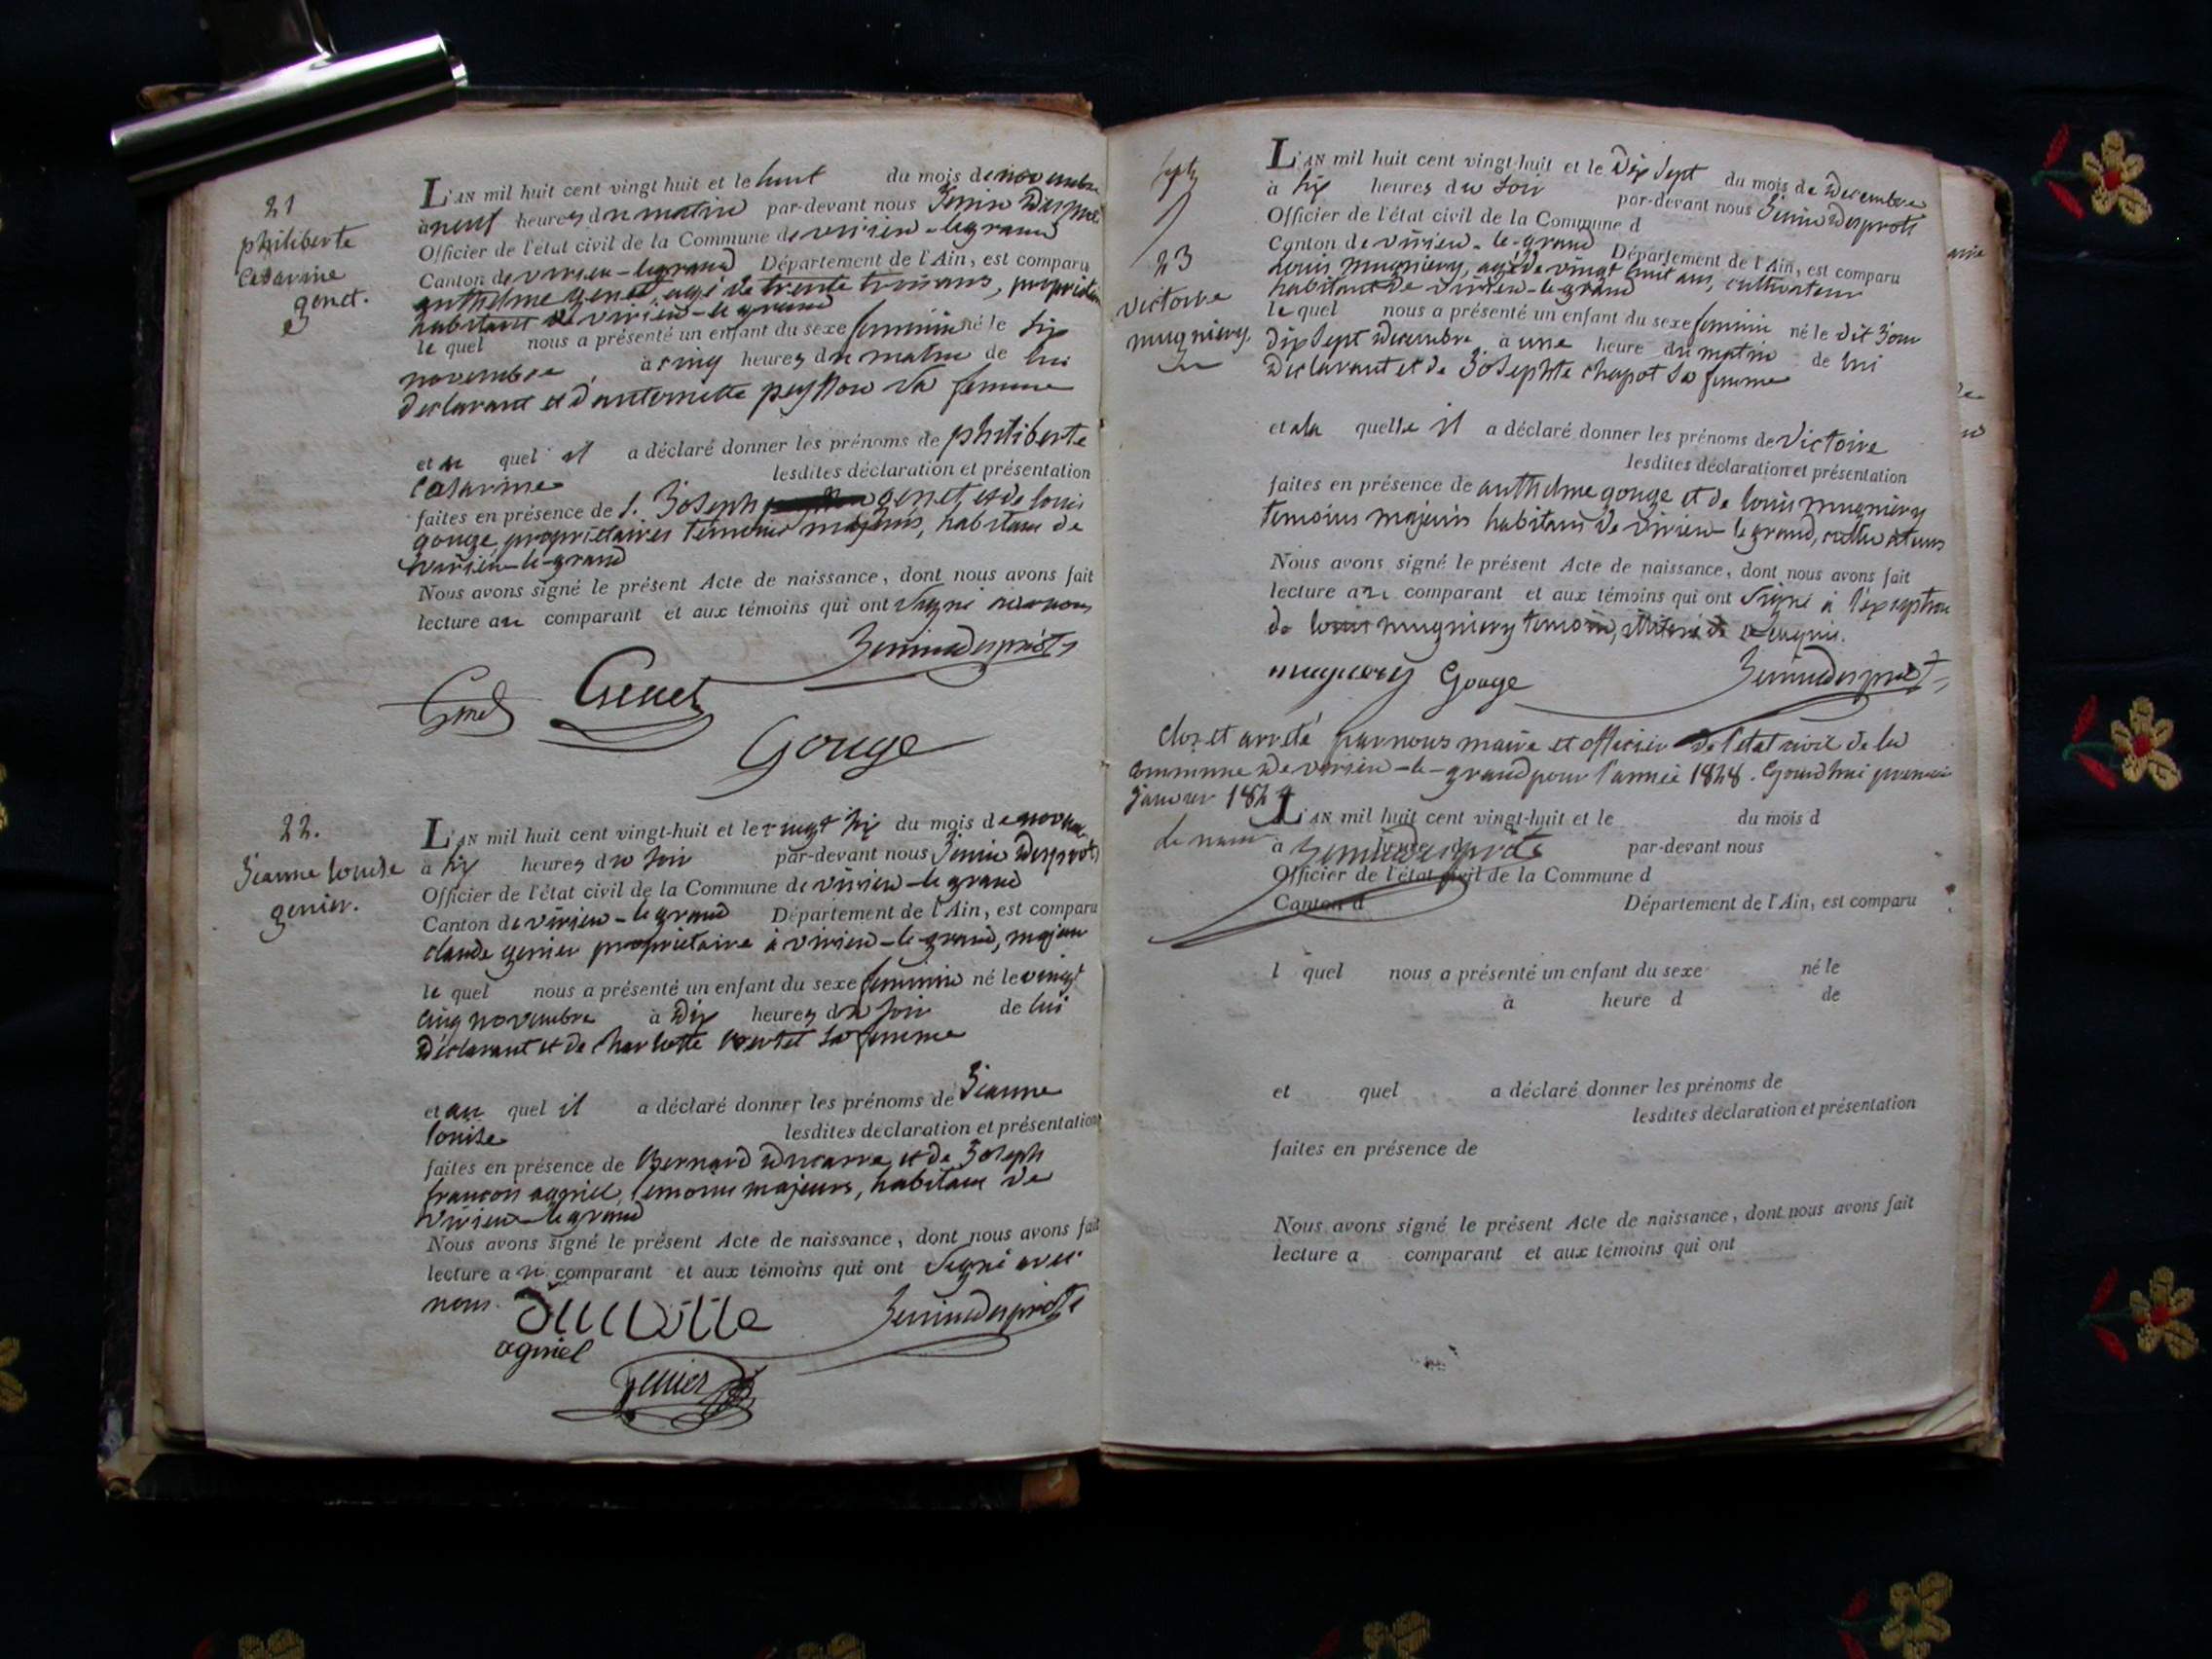 21
philiberte
Césarine
genet.
L'AN mil huit cent vingt huit et le huit du mois de novembre
à neuf heures du matin par-devant nous Jenin Desprots
Officier de l'état civil de la Commune de virieu-le grand
Canton de virieu-legrand Département de l'Ain, est comparu
anthelme genet, agé de trente trois ans, propriétaire
habitant de virieu-le grand
le quel nous a présenté un enfant du sexe feminin né le six
novembre, à cinq heures du matin de lui
declarant et d'antoinette peysson sa femme
et au quel il a déclaré donner les prénoms de philiberte
Césarine lesdites déclaration et présentation
faites en présence de s. Joseph genet, et de louis
gouge, propriétaires témoins majeurs, habitans de
virieu-le-grand
Nous avons signé le présent Acte de naissance, dont nous avons fait
lecture au comparant et aux témoins qui ont signé avec nous
Jenin Desprots
Genet Genet
Gouge
22.
Jeanne louise
genier.
L'AN mil huit cent vingt-huit et le vingt six du mois de novembre
à six heures du soir par-devant nous Jenin Desprots
Officier de l'état civil de la Commune de virieu-le grand
Canton de virieu-le grand Département de l'Ain, est comparu
claude genier propriétaire à virieu-le-grand, majeur
le quel nous a présenté un enfant du sexe feminin né le vingt
cinq novembre à dix heures du soir de lui
déclarant et de charlotte sa femme
et au quel il a déclaré donner les prénoms de Jeanne
louise lesdites déclaration et présentation
faites en présence de Bernard Ducarre, et de Joseph
françois agniel, temoins majeurs, habitans de
virieu-legrand
Nous avons signé le présent Acte de naissance, dont nous avons fait
lecture au comparant et aux témoins qui ont signé avec
nous.
Jenin Desprots
agniel
genier
23
victoire
mugniery
L'AN mil huit cent vingt-huit et le dix sept du mois de decembre
à six heures du soir par-devant nous Jenin Desprots
Officier de l'état civil de la Commune d
Canton de virieu-le-grand Département de l'Ain, est comparu
louis mugniery, agé de vingt huit ans, cultivateur
habitant de virieu-le-grand
le quel nous a présenté un enfant du sexe feminin né le dit jour
dix sept decembre à une heure du matin de lui
declarant et de Josephte chapot sa femme
et a la quelle il a déclaré donner les prénoms de victoire
lesdites déclaration et présentation
faites en présence de anthelme gouge et de louis mugniery
temoins majeurs habitans de virieu-le grand, cultivateurs
Nous avons signé le présent Acte de naissance, dont nous avons fait
lecture au comparant et aux témoins qui ont signé à l'exception
de louis mugniery temoin, illitéré de enquis.
mugniery Gouge Jenin Desprots
Clos et arrêté par nous maire et officier de l'état civil de la
commune de virieu-le-grand pour l'année 1828. Cejourdhui premier
janvier 1829
L'AN mil huit cent vingt-huit et le du mois d
le maire à Jenin Desprots par-devant nous
Officier de l'état civil de la Commune d
Canton d Département de l'Ain, est comparu
l quel nous a présenté un enfant du sexe né le
à heure d de
et quel a déclaré donner les prénoms de
lesdites déclaration et présentation
faites en présence de
Nous avons signé le présent Acte de naissance, dont nous avons fait
lecture a comparant et aux témoins qui ont